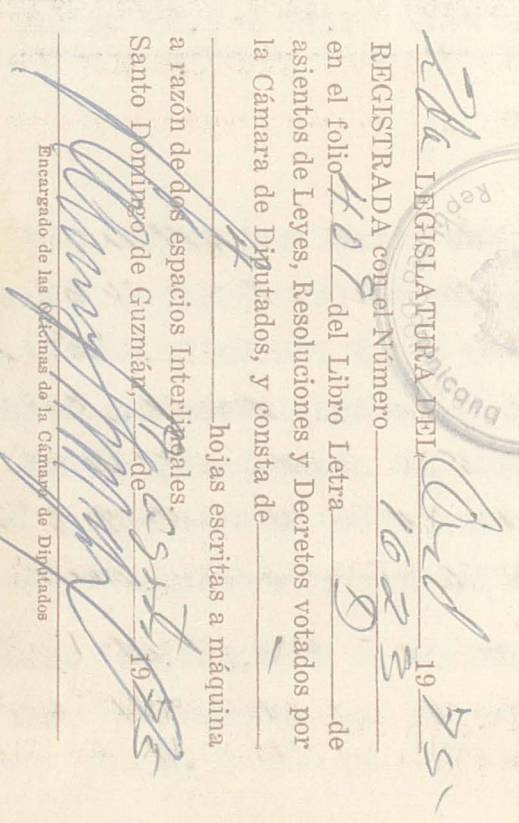 2da LEGISLATURA DEL Ord 1975
REGISTRADA con el Número 1623
en el folio 408 del Libro Letra de
asientos de Leyes, Resoluciones y Decretos votados por
la Cámara de Diputados, y consta de
hojas escritas a máquina
a razón de dos espacios Interlineales
Santo Domingo de Guzmán, de 1975
Encargado de las Oficinas de la Cámara de Diputados
Repú
Dominicana